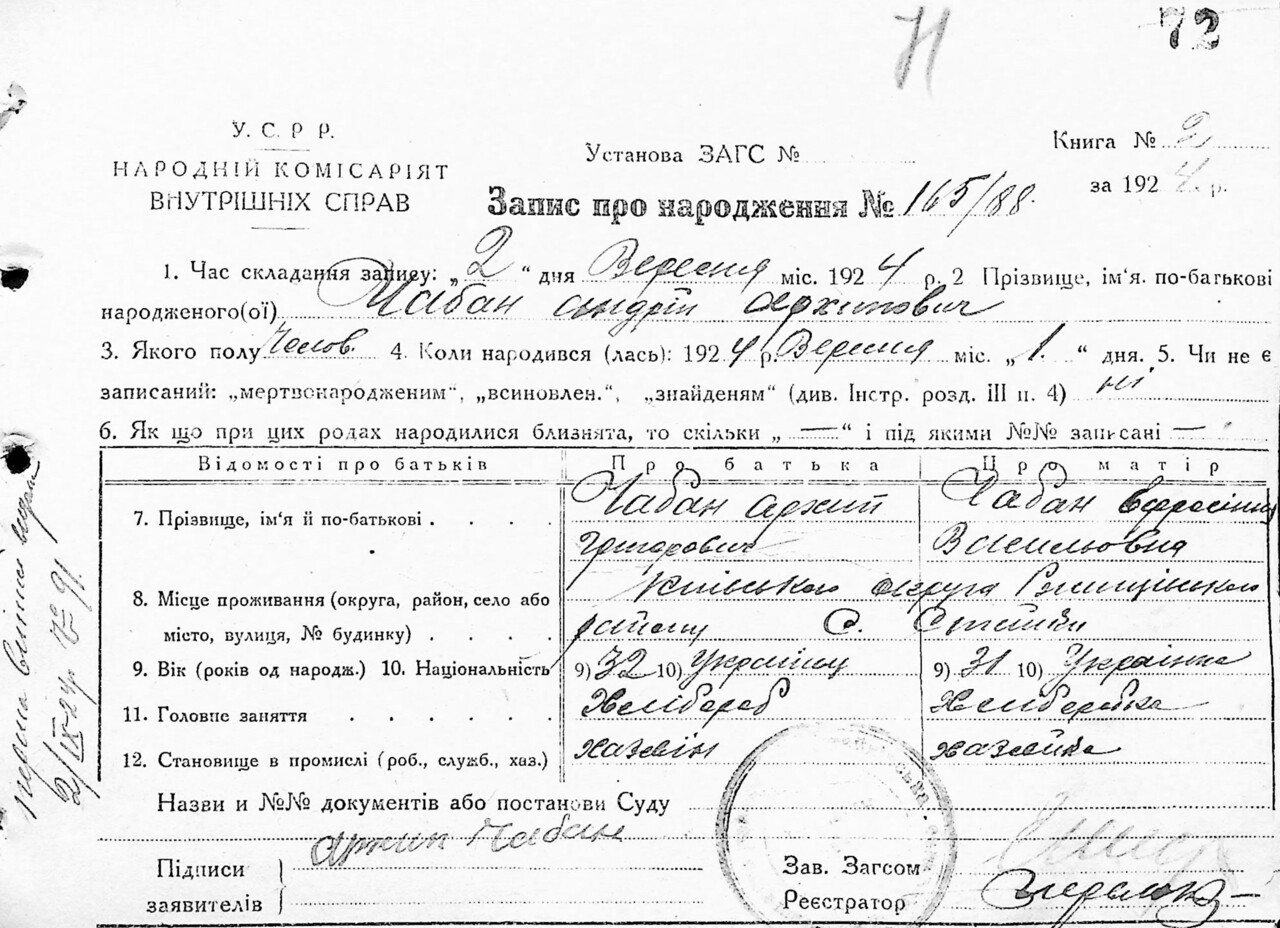 71
72
У. С. Р Р.
НАРОДНІЙ КОМІСАРІЯТ
ВНУТРІШНІХ СПРАВ
Установа ЗАГС №
Книга № 2
за 1924 р.
Запис про народження № 165/88.
1. Час складання запису: „2“ дня Вересня міс. 1924 р. 2 Прізвище, ім‘я. по-батькові
народженого(ої) Чабан Андрій Архипович
3. Якого полу Челов. 4. Коли народився (лась): 1924 р. Вересня міс. „1.“ дня. 5. Чи не є
записаний: „мертвонародженим“, „всиновлен.“, „знайденям“ (див. Інстр. розд. III п. 4) ні
6. Як що при цих родах народилися близнята, то скільки „—“ і під якими №№ записані —
Відомості про батьків Про батька Про матір
7. Прізвище, ім‘я й по-батькові Чабан Архип Чабан
Григорович Василь овна
8. Місце проживання (округа, район, село або Київського округа Ржищівського
місто, вулиця, № будинку) району С. Стайки
9. Вік (років од народж.) 10. Національність 9) 32 10) Українец 9) 31 10) Українка
11. Головне заняття Хлібороб Хліборобка
12. Становище в промислі (роб., служб., хаз.) хазяїн хазяйка
Назви и №№ документів або постанови Суду
Підписи
заявителів
Архип Чабан
Зав. Загсом
Реєстратор
перша
2/IX-24р № 91